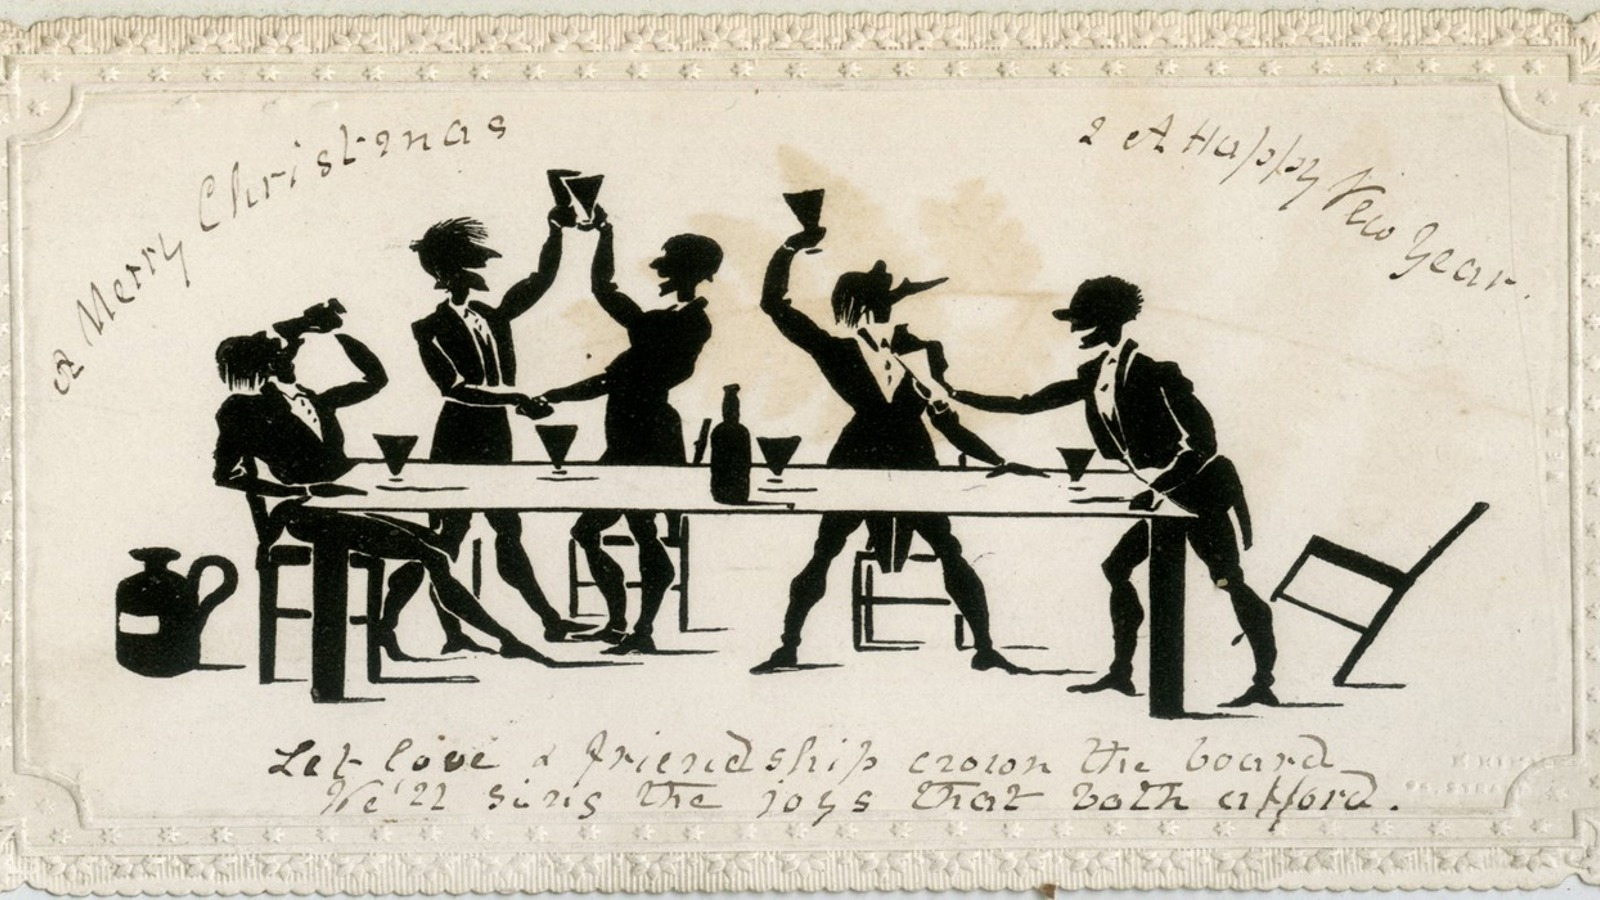 a Merry Christmas
& A Happy New Year.
Let love & friendship crown the board
We'll sing the joys that both afford.